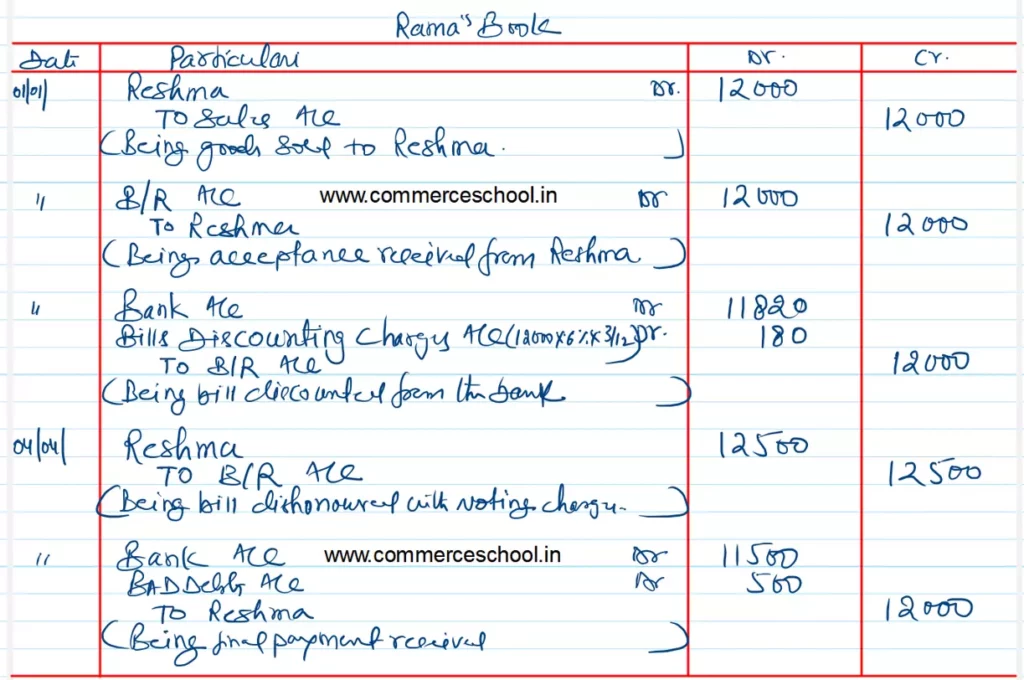 Rama's Book
Date Particulars Dr. Cr.
01/01/ Reshma Dr. 12000
To Sales A/c 12000
(Being goods sold to Reshma. )
" B/R A/c www.commerceschool.in Dr 12000
To Reshma 12000
(Being acceptance received from Reshma )
" Bank A/c Dr 11820
Bills Discounting Charges A/c (12000x6%x3/12) Dr. 180
To B/R A/c 12000
(Being bill discounted from the bank )
04/04/ Reshma 12500
To B/R A/c 12500
(Being bill dishonoured with Noting charge. )
" Bank A/c www.commerceschool.in Dr 11500
BAD Debts A/c Dr 500
To Reshma 12000
(Being final payment received )